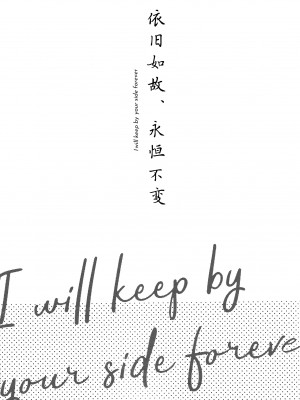 依旧如故、永恒不变
I will keep by your side forever
I will keep by
your side foreve